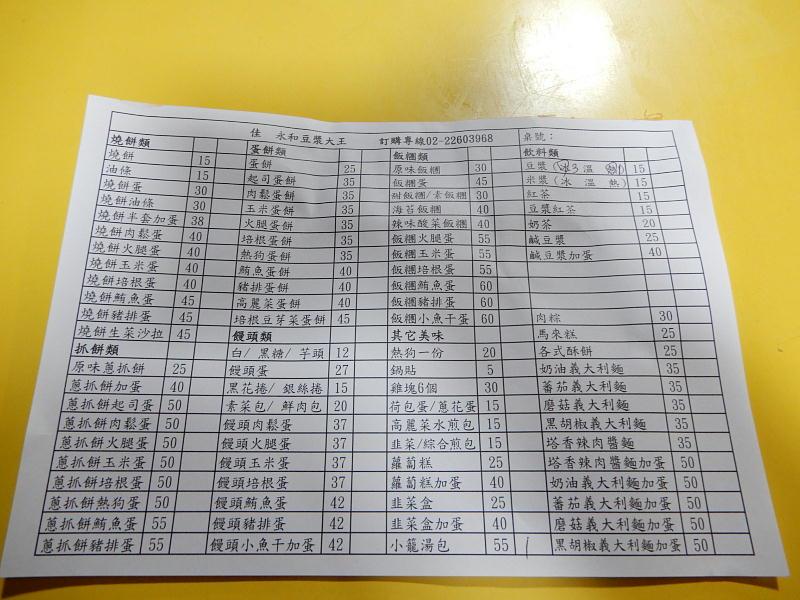 佳 永和豆漿大王 訂購專線02-22603968 桌號：
燒餅類
燒餅 15
油條 15
燒餅蛋 30
燒餅油條 30
燒餅半套加蛋 38
燒餅肉鬆蛋 40
燒餅火腿蛋 40
燒餅玉米蛋 40
燒餅培根蛋 40
燒餅鮪魚蛋 45
燒餅豬排蛋 45
燒餅生菜沙拉 45
抓餅類
原味蔥抓餅 25
蔥抓餅加蛋 40
蔥抓餅起司蛋 50
蔥抓餅肉鬆蛋 50
蔥抓餅火腿蛋 50
蔥抓餅玉米蛋 50
蔥抓餅培根蛋 50
蔥抓餅熱狗蛋 50
蔥抓餅鮪魚蛋 55
蔥抓餅豬排蛋 55
蛋餅類
蛋餅 25
起司蛋餅 35
肉鬆蛋餅 35
玉米蛋餅 35
火腿蛋餅 35
培根蛋餅 35
熱狗蛋餅 35
鮪魚蛋餅 40
豬排蛋餅 40
高麗菜蛋餅 40
培根豆芽菜蛋餅 45
饅頭類
白/ 黑糖/ 芋頭 12
饅頭蛋 27
黑花捲/ 銀絲捲 15
素菜包/ 鮮肉包 20
饅頭肉鬆蛋 37
饅頭火腿蛋 37
饅頭玉米蛋 37
饅頭培根蛋 37
饅頭鮪魚蛋 42
饅頭豬排蛋 42
饅頭小魚干加蛋 42
飯糰類
原味飯糰 30
飯糰蛋 45
甜飯糰/素飯糰 30
海苔飯糰 40
辣味酸菜飯糰 40
飯糰火腿蛋 55
飯糰玉米蛋 55
飯糰培根蛋 55
飯糰鮪魚蛋 60
飯糰豬排蛋 60
飯糰小魚干蛋 60
其它美味
熱狗一份 20
鍋貼 5
雞塊6個 30
荷包蛋/蔥花蛋 15
高麗菜水煎包 15
韭菜/綜合煎包 15
蘿蔔糕 25
蘿蔔糕加蛋 40
韭菜盒 25
韭菜盒加蛋 40
小籠湯包 55
飲料類
豆漿 (冰3 溫 熱) 15
米漿(冰 溫 熱) 15
紅茶 15
豆漿紅茶 15
奶茶 20
鹹豆漿 25
鹹豆漿加蛋 40
肉粽 30
馬來糕 25
各式酥餅 25
奶油義大利麵 35
蕃茄義大利麵 35
磨菇義大利麵 35
黑胡椒義大利麵 35
塔香辣肉醬麵 35
塔香辣肉醬麵加蛋 50
奶油義大利麵加蛋 50
蕃茄義大利麵加蛋 50
磨菇義大利麵加蛋 50
黑胡椒義大利麵加蛋 50